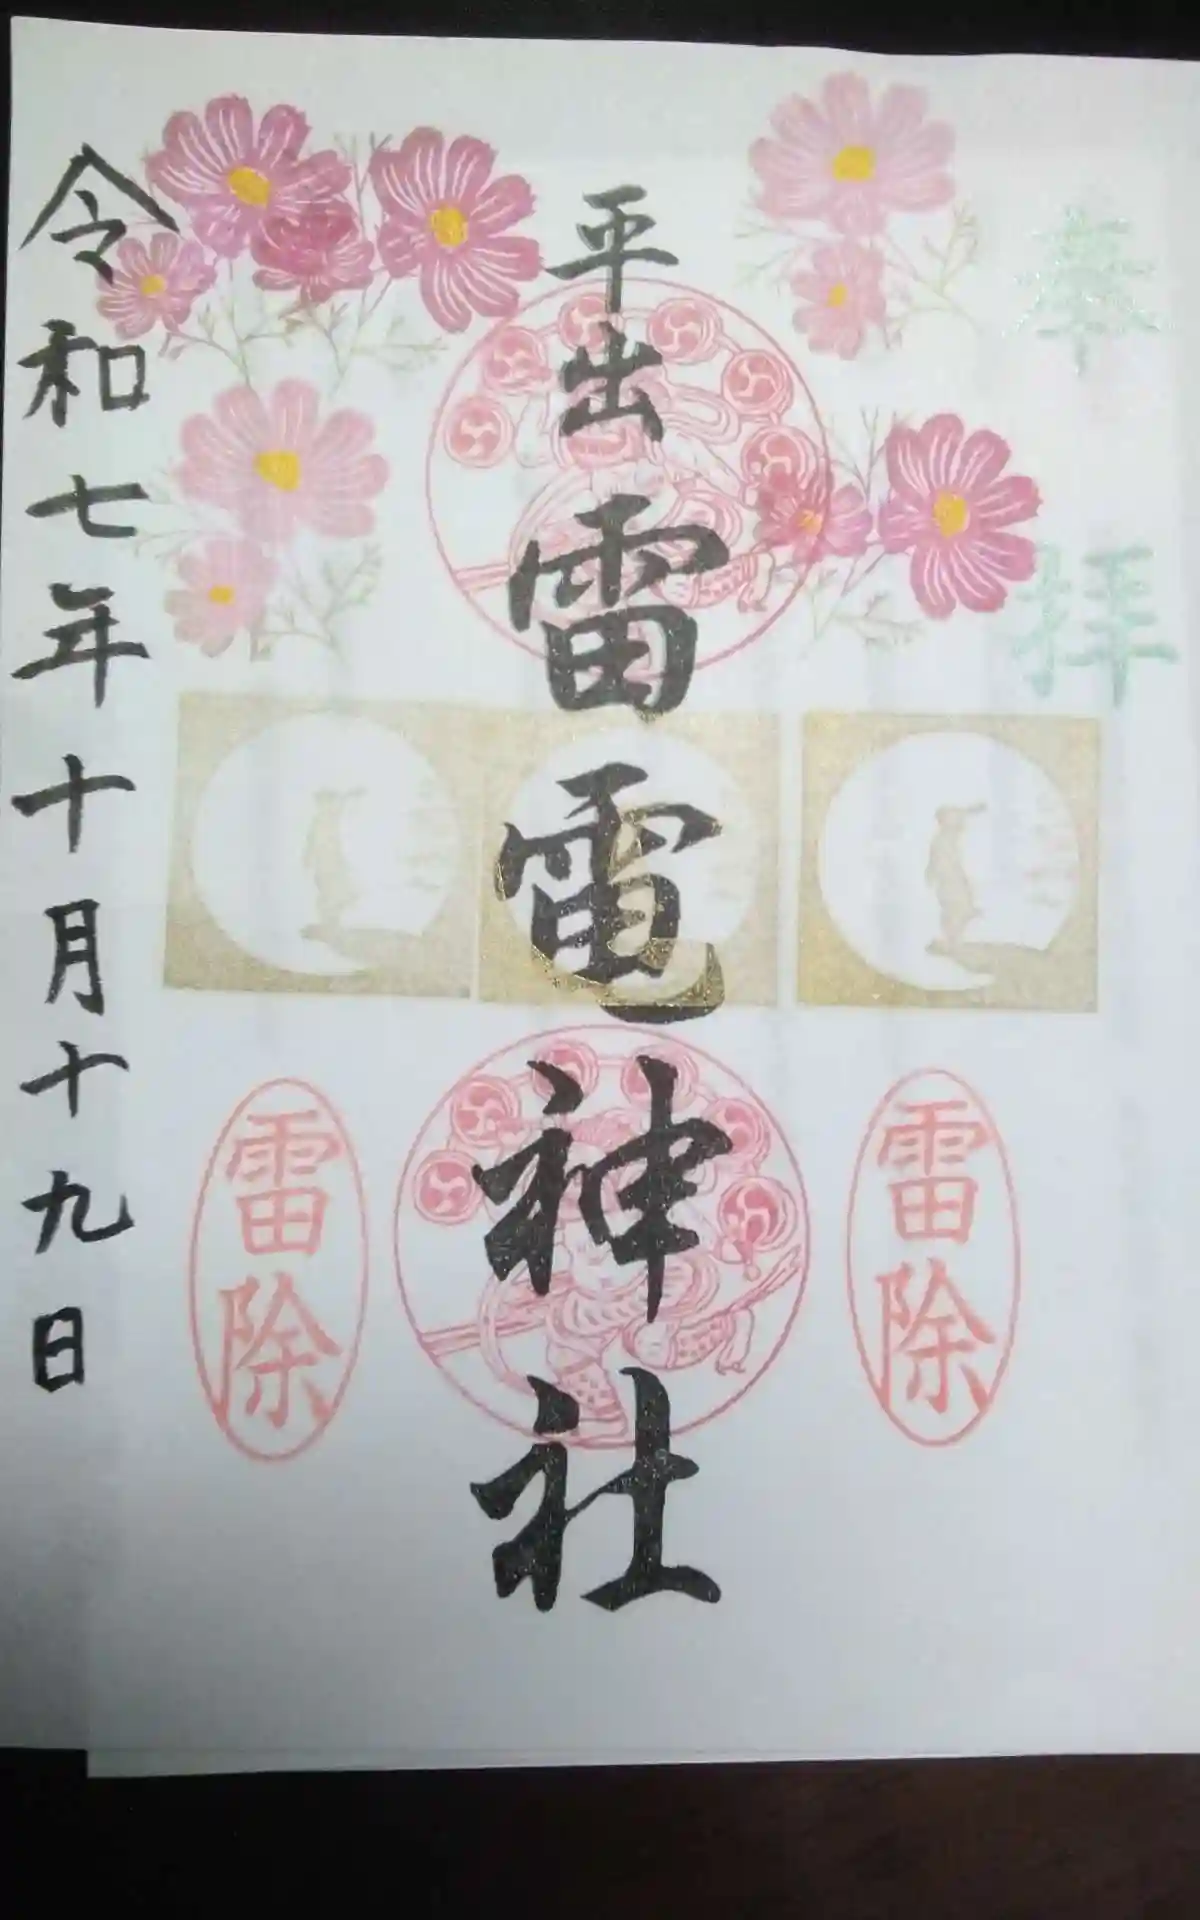 奉拝
平出雷電神社
雷除
雷除
令和七年十月十九日